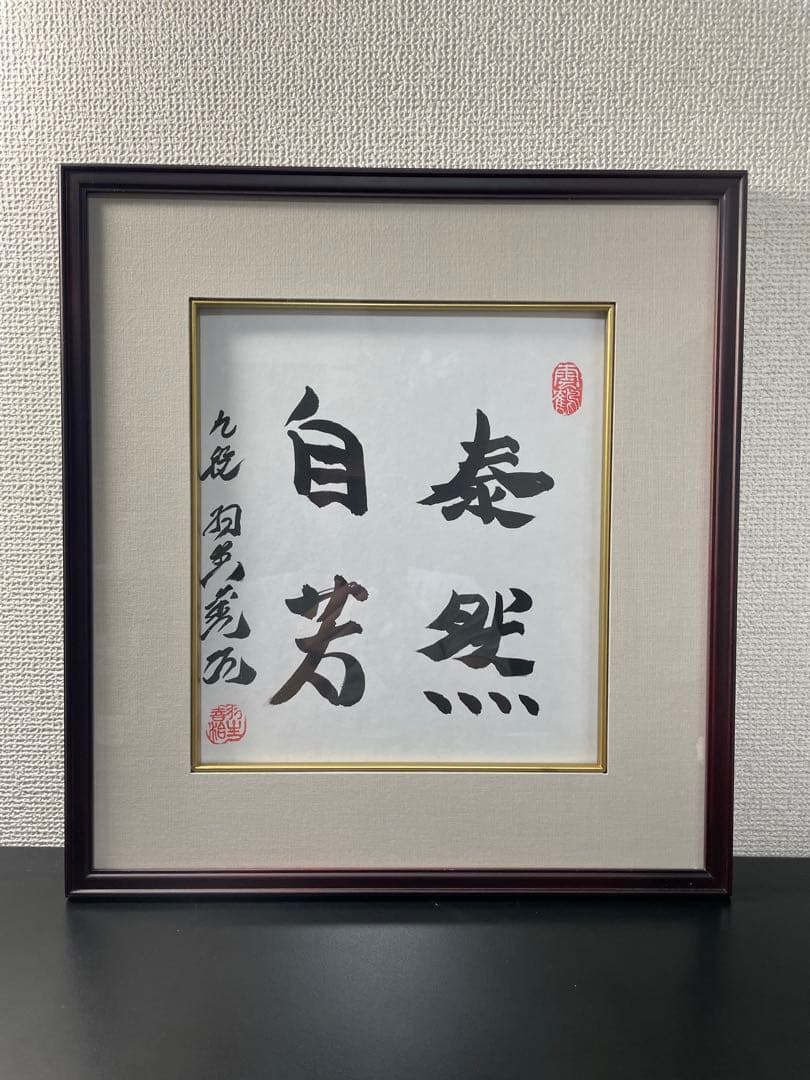 雲鶴
泰然
自芳
九段 羽生善治
羽生善治